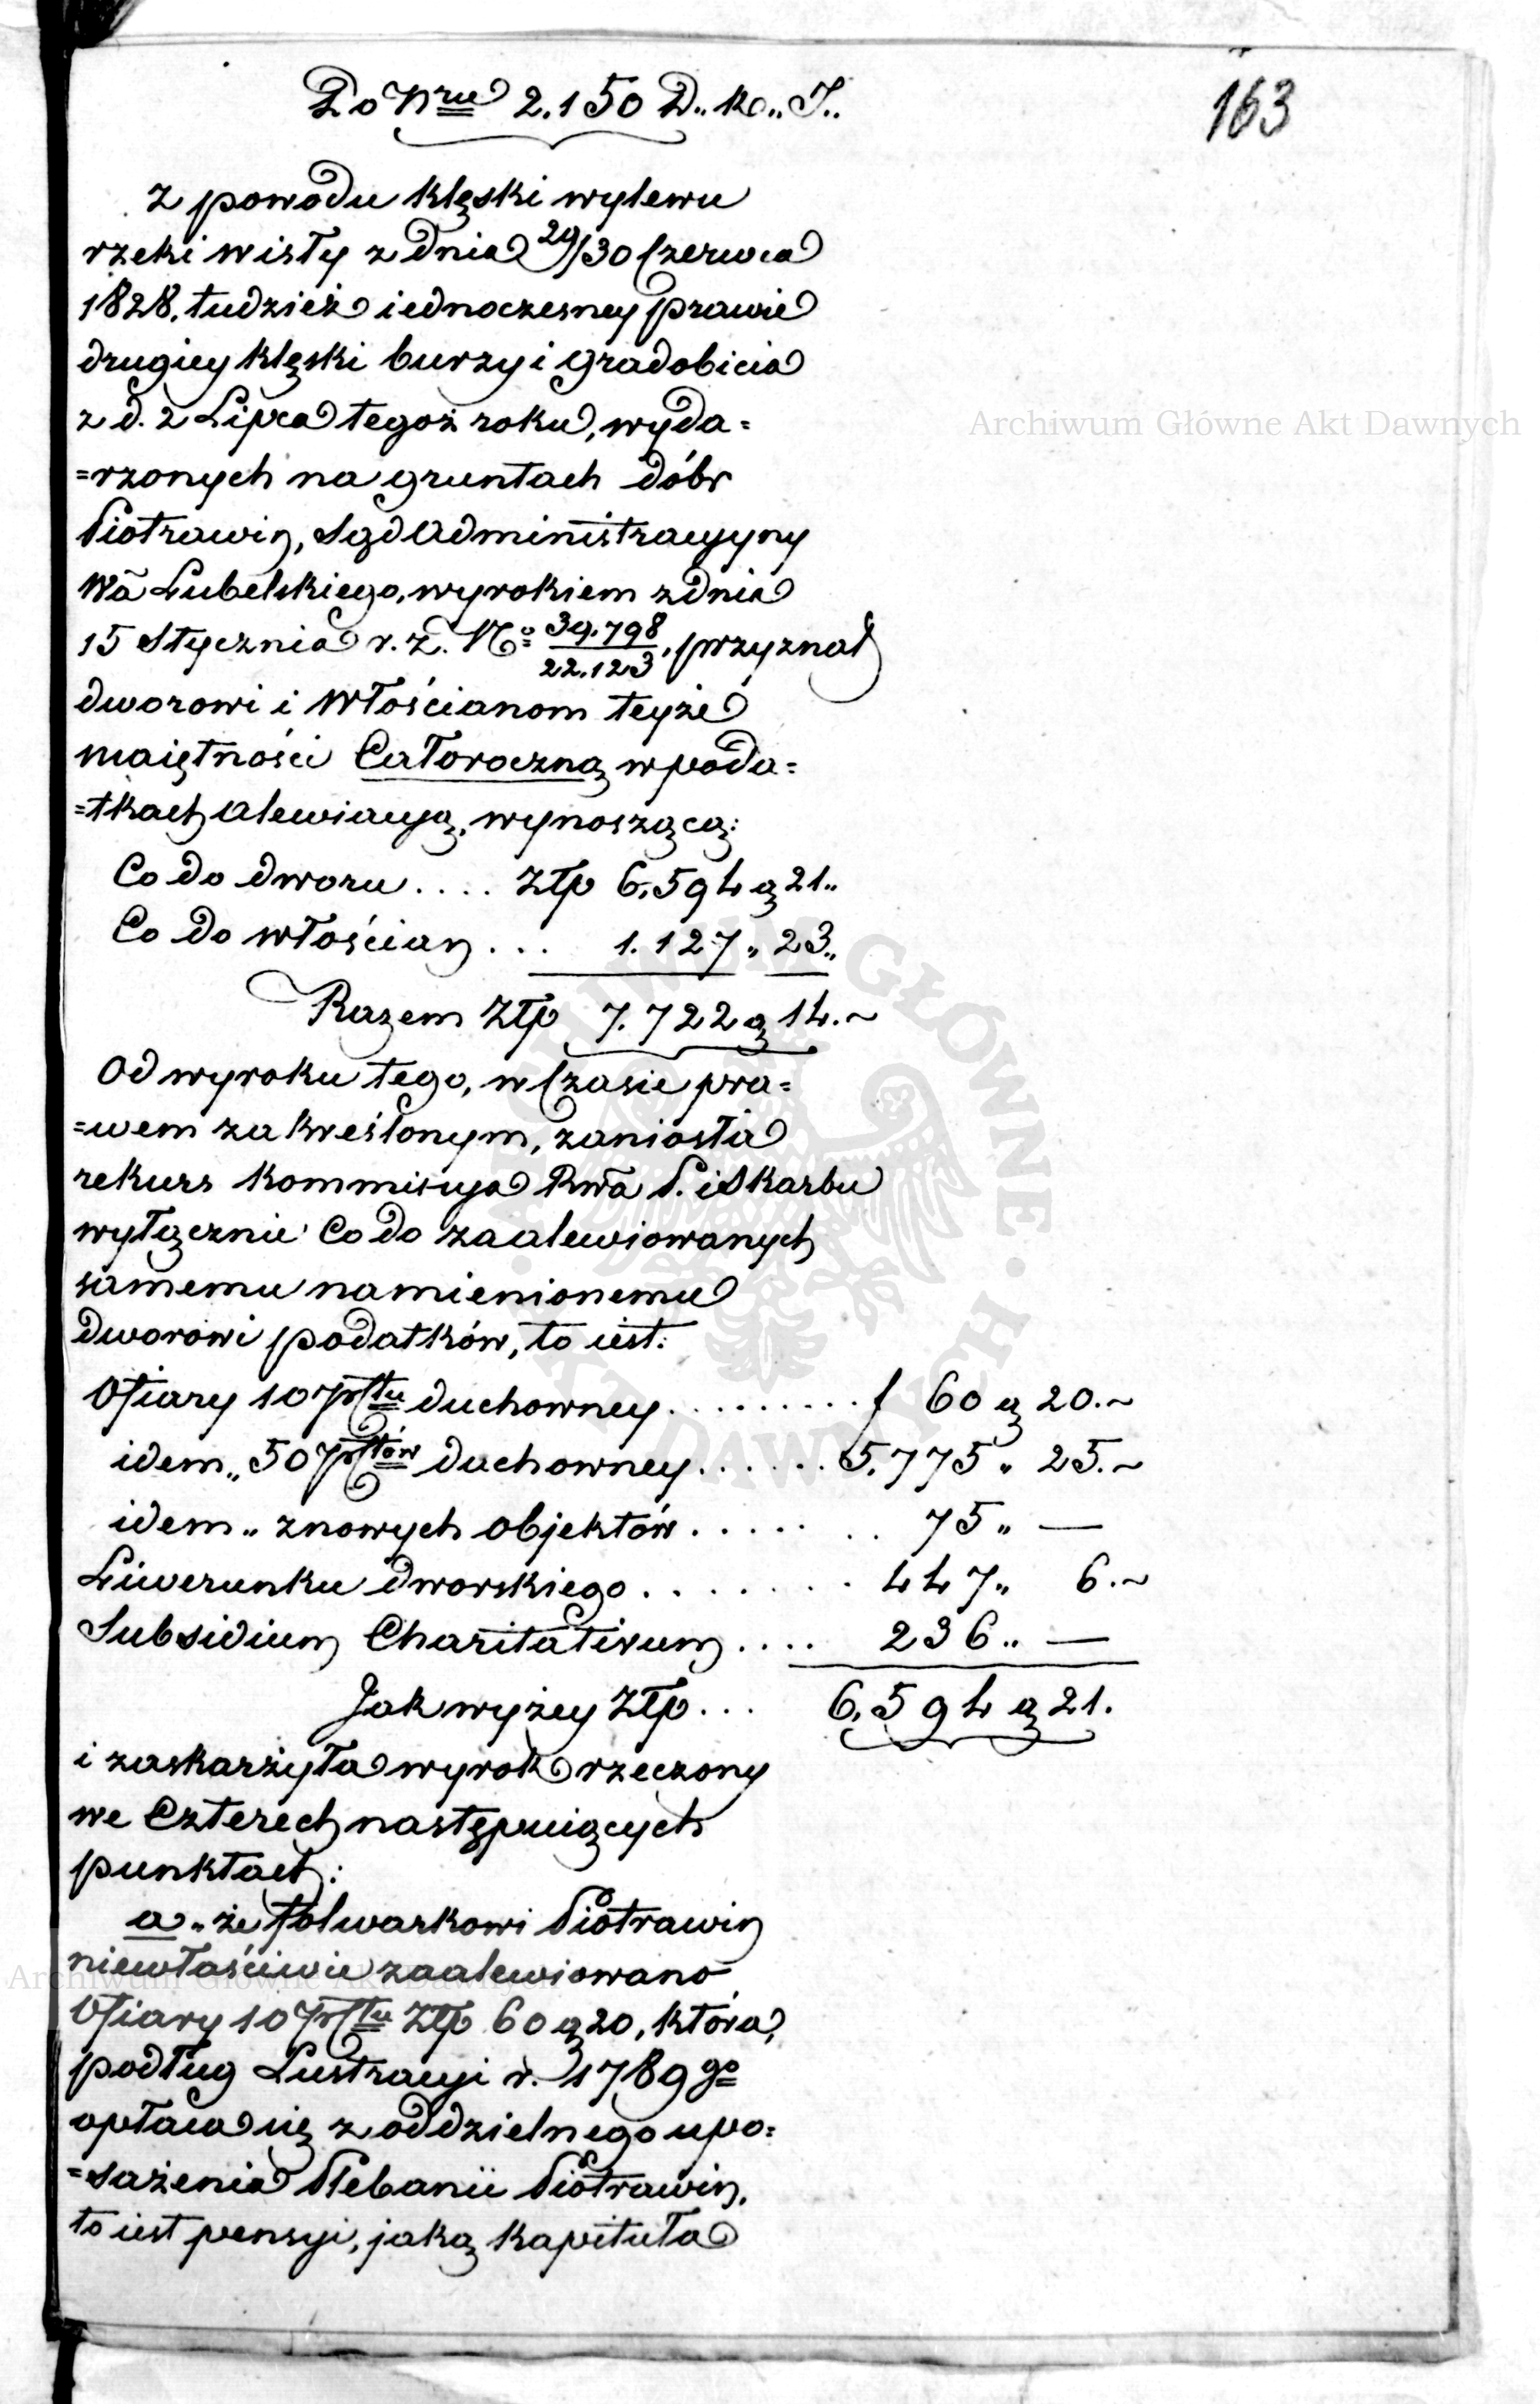 Do Nru 2.150 D. Ko. J.
163
Z powodu klęski wylewu
rzeki Wisły z dnia 29/30 Czerwca
1828. tudzież iednoczesney prawie
drugiey klęski burzy i gradobicia
z d. 2 Lipca tegoż roku, wyda=
=rzonych na gruntach dóbr
Piotrawin, Sąd Administracyyny
Wa Lubelskiego, wyrokiem z dnia
15 Stycznia r. z. No 39.798/22.123, przyznał
dworowi i Włościanom teyże
maiętności Całoroczną w poda=
=tkach alewiacyą, wynoszącą:
Co do dworu .... Złp 6.594 g 21"
Co do Włościan ... 1.127 " 23"
Razem Złp 7.722 g 14.~
Od wyroku tego, w Czasie pra=
=wem zakreślonym, zaniosła
rekurs Kommissya Rwa P. i Skarbu
wyłącznie Co do zaalewiowanych
samemu namienionemu
dworowi podatków, to iest:
Ofiary 10 duchowney ......... f 60 g 20.~
idem " 50 duchowney ...... 5.775 " 25.~
idem " z nowych objektów ....... 75 " —
Liwerunku dworskiego ........ 447 " 6.~
Subsidium Charitativum .... 236 " —
Jak wyżey Złp ... 6.594 g 21.
i zaskarżyła wyrok rzeczony
we Czterech następuiących
punktach:
a " że folwarkowi Piotrawin
niewłaściwie zaalewiowano
Ofiary 10 Złp 60 g 20, która,
podług Lustracyi r. 1789 go
opłaca się z oddzielnego upo=
=sażenia Plebanii Piotrawin,
to iest pensyi, jaką Kapituła
Archiwum Główne Akt Dawnych